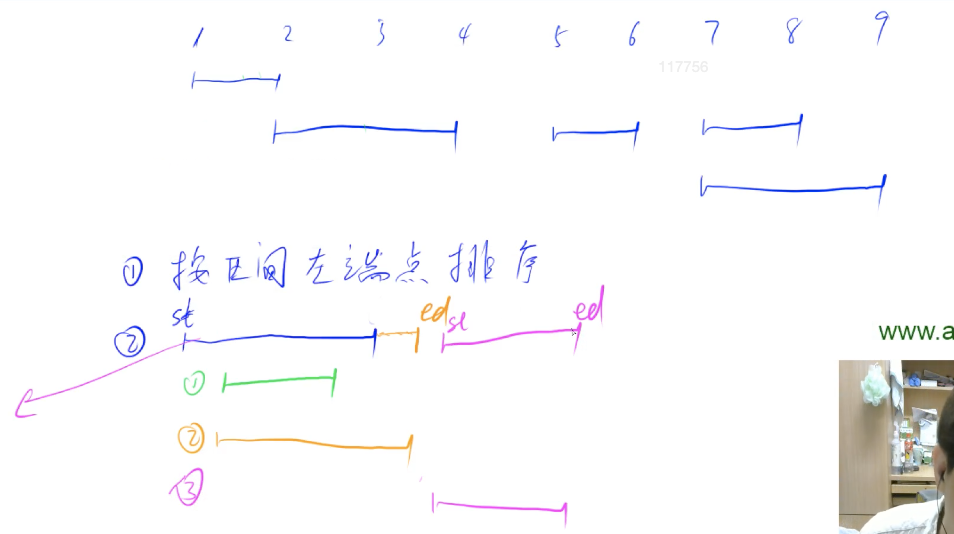 1 2 3 4 5 6 7 8 9
117756
① 按区间左端点排序
st ed st ed
②
www.a
①
②
③